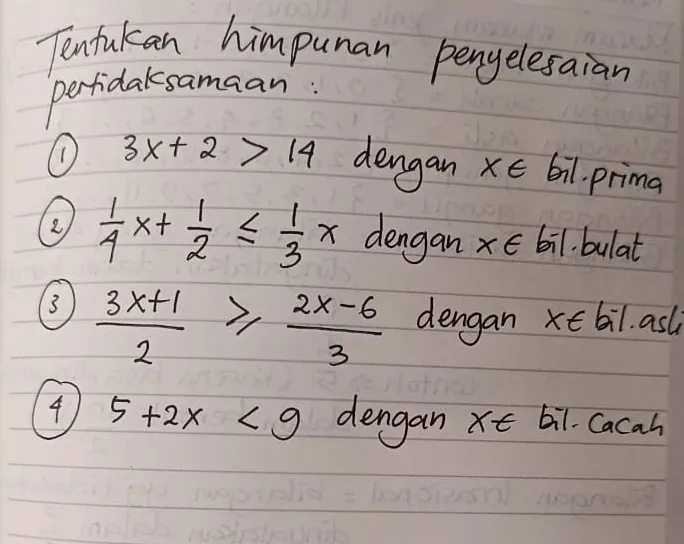 Tentukan himpunan penyelesaian
pertidaksamaan :
① 3x + 2 > 14 dengan x ∈ bil.prima
② 1/4 x + 1/2 ≤ 1/3 x dengan x ∈ bil.bulat
③ (3x+1)/2 ≥ (2x-6)/3 dengan x ∈ bil.asli
④ 5 + 2x < 9 dengan x ∈ bil. cacah